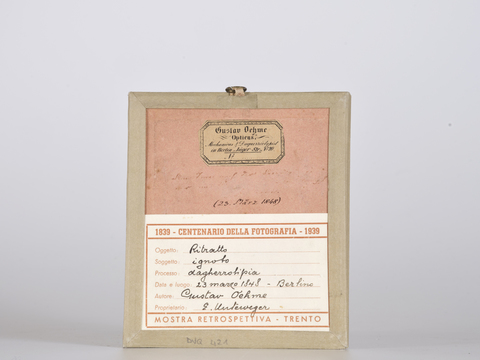 Gustav Oehme
Opticus,
Mechanicus & Daguerreotypist
in Berlin, Jäger Str.
(23. März 1848)
1839 - CENTENARIO DELLA FOTOGRAFIA - 1939
Oggetto: Ritratto
Soggetto: ignoto
Processo: dagherrotipia
Data e luogo: 23 marzo 1848 - Berlino
Autore: Gustav Oehme
Proprietario: E. Unterveger
MOSTRA RETROSPETTIVA - TRENTO